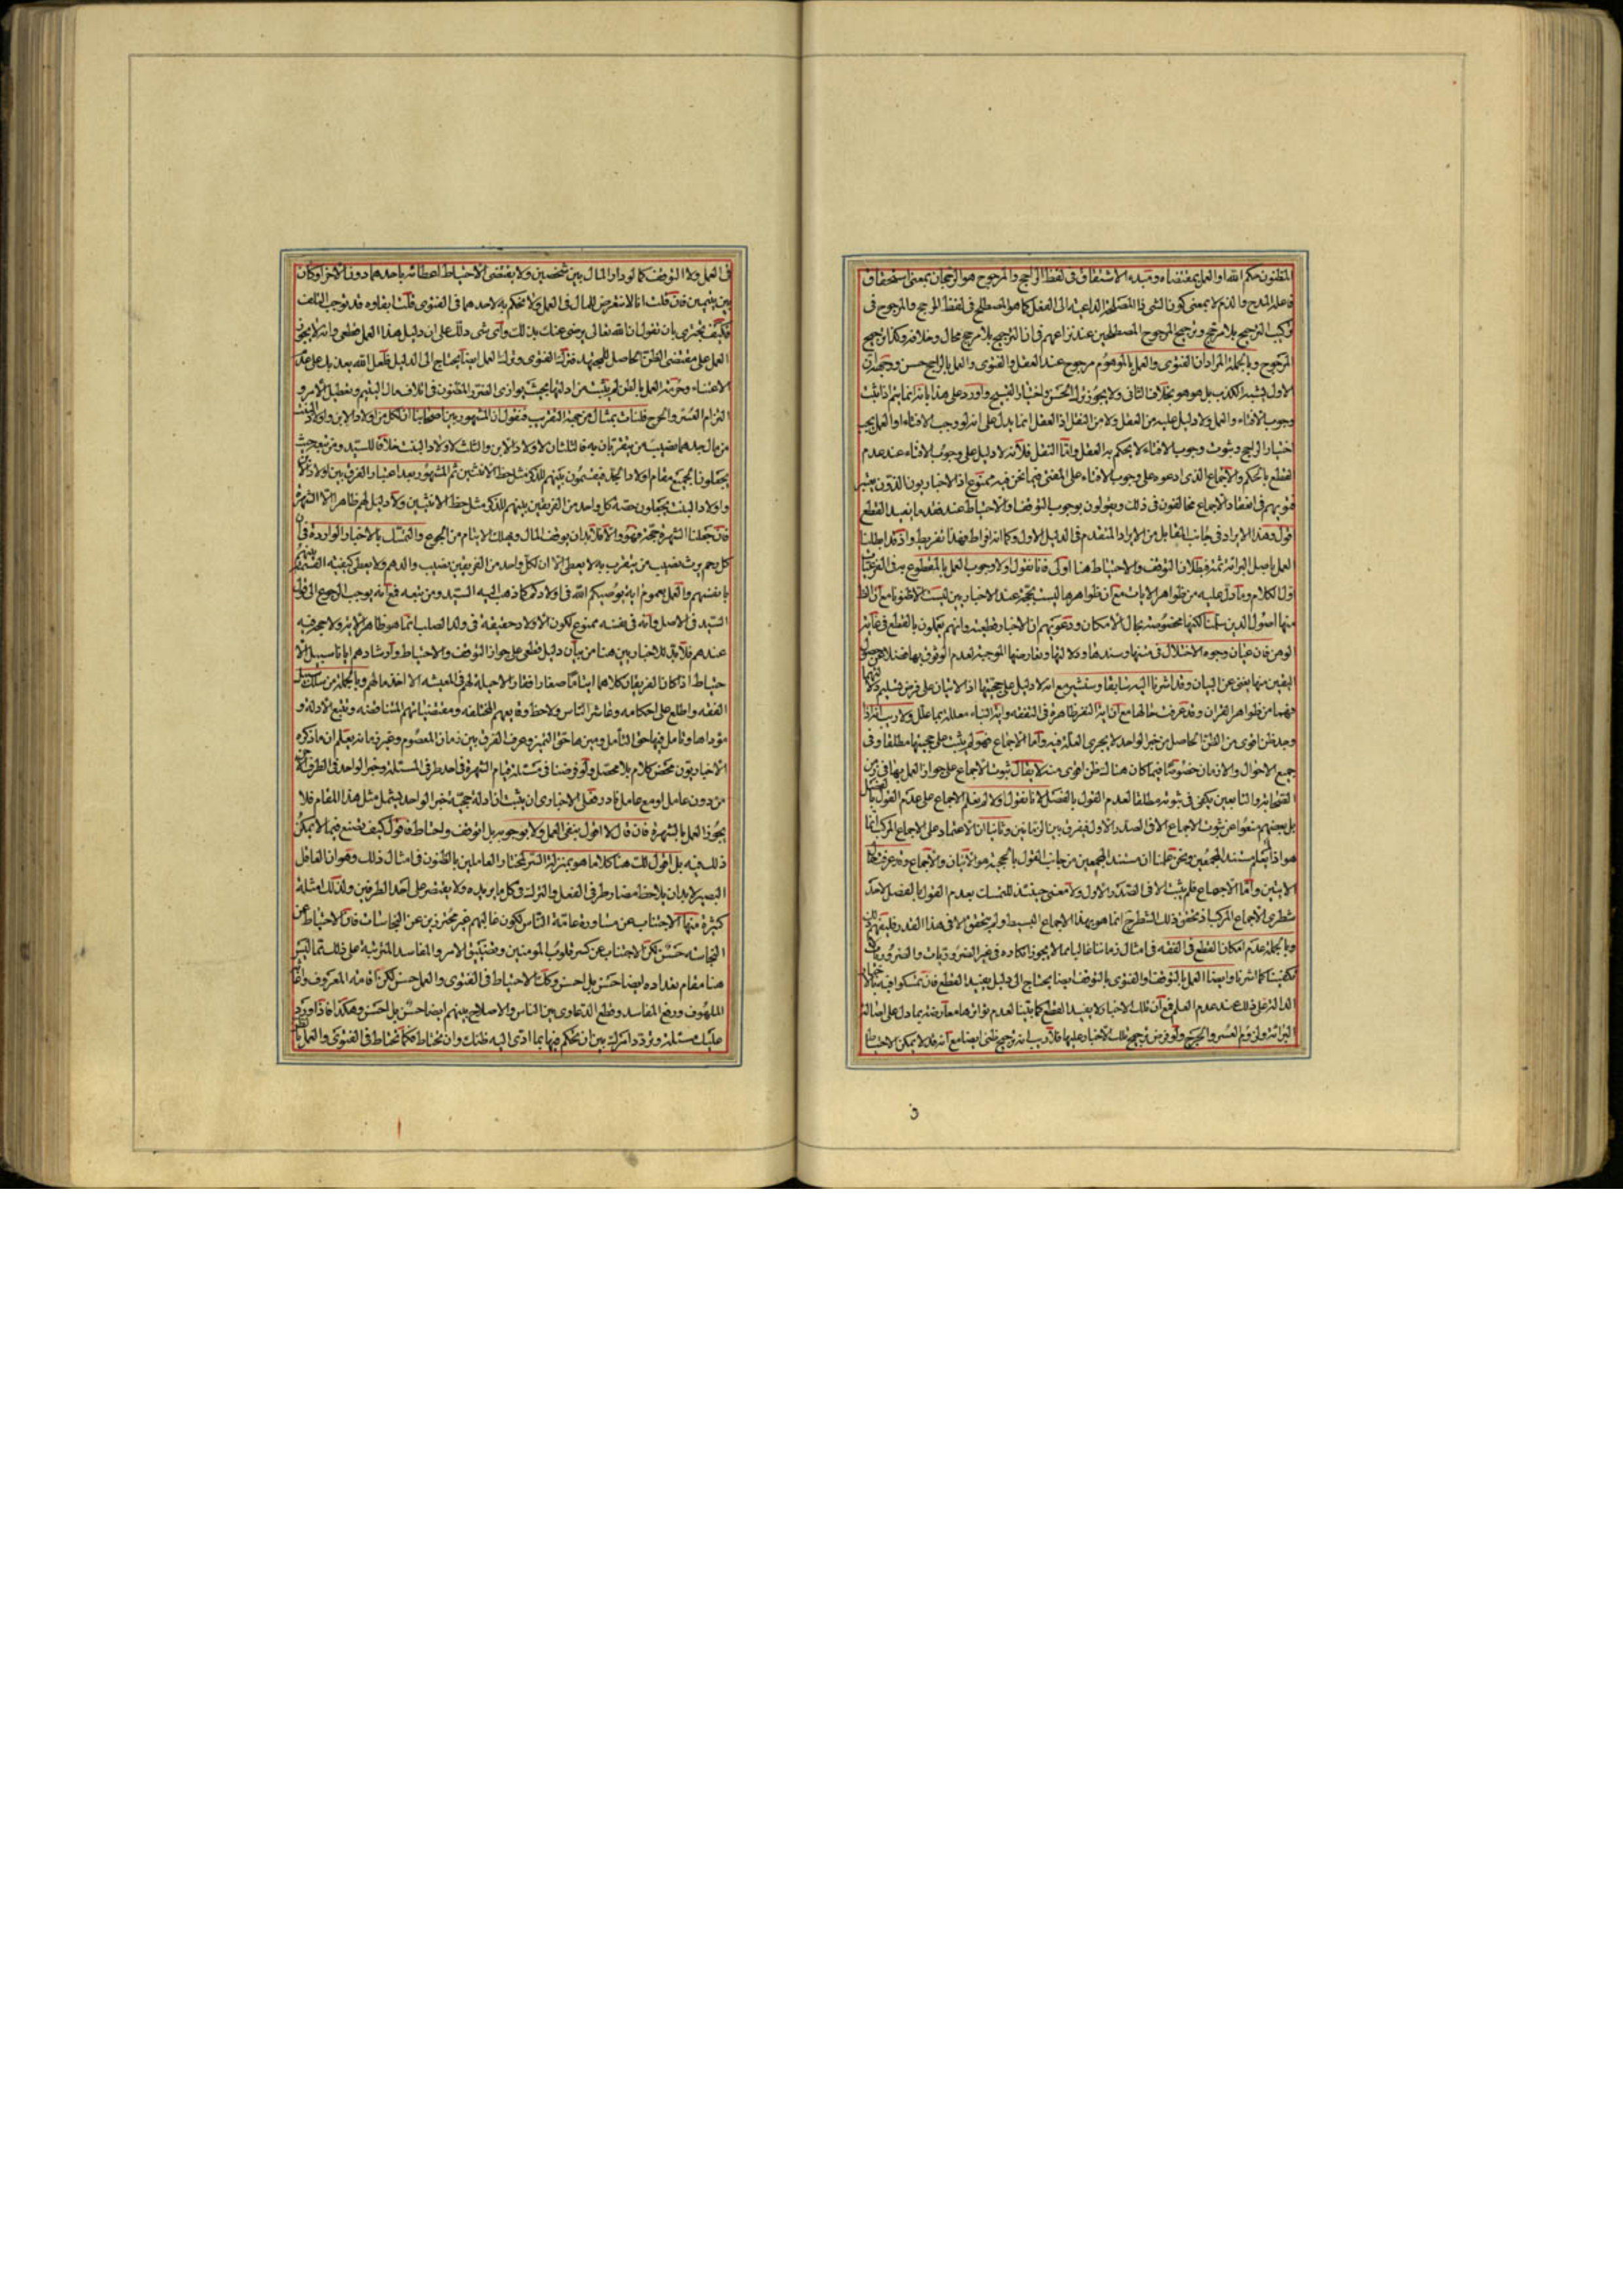 المظنون حكم الله او العمل بمقتضاه ومبدء الاشتقاق فى لفظ الراجح والمرجوح هو الرجحان بمعنى استحقاق
فاعله المدح والذم لا بمعنى كون الشى ذا المصلحة الداعية الى الفعل كما هو المصطلح فى لفظ المرجح والمرجوح فى
تركيب الترجيح بلا مرجح وترجيح المرجوح المصطلحين عند نزاعهم فى ان الترجيح بلا مرجح محال وخلافه وكذا ترجيح
المرجوح وبالجملة المراد ان الفتوى والعمل بالموهوم مرجوح عند العقل والفتوى والعمل بالراجح حسن ووجهه ان
الاول يشبه الكذب بل هو هو بخلاف الثانى ولا يجوز ترك الحسن واختيار القبيح واورد على هذا بانه انما يتم اذا ثبت
وجوب الافتاء والعمل ولا دليل عليه من العقل ولا من النقل اذ العقل انما يدل على انه لو وجب الافتاء او العمل يجب
اختيار الراجح وثبوت وجوب الافتاء لا يحكم به العقل واما النقل فلانه لا دليل على وجوب الافتاء عند عدم
القطع بالحكم والاجماع الذى ادعوه على وجوب الافتاء على المفتى فيما نحن فيه ممنوع اذ الاخباريون الذين يعتبر
فتويهم فى انعقاد الاجماع مخالفون فى ذلك ويقولون بوجوب التوقف والاحتياط عند فقد ما يفيد القطع
اقول وهذا الايراد فى جانب المقابل من الايراد المتقدم فى الدليل الاول وكما انه افراط فهذا تفريط واذ قد ابطلنا
العمل باصل البرائة ثمة فبطلان التوقف والاحتياط هنا اولى فانا نقول اولا وجوب العمل بالمقطوع به فى الفرعيات
اول الكلام وما دل عليه من ظواهر الايات مع ان ظواهرها ليست بحجة عند الاخباريين ليست الا ظنونا مع ان
منها اصول الدين سلمنا لكنها مخصوصة بحال الامكان ودعويهم ان الاخبار قطعية وانهم يعملون بالقطع فى غاية
الوهن فان عيان وجوه الاختلال فى متنها وسندها ودلالتها وتعارضها الموجبة لعدم الوثوق بها فضلا عن حصول
اليقين منها يغنى عن البيان وقد اشرنا اليه سابقا وسنشير مع انه لا دليل على حجيتها اذ الايتان على فرض تسليم دلالتهما
فهما من ظواهر القران وقد عرفت حالها مع ان اية النفر ظاهرة فى التفقه واية النباء معللة بما علل ولا ريب انه اذا
وجد ظن اقوى من الظن الحاصل من خبر الواحد لا يجرى العلة فيه واما الاجماع فهو لم يثبت على حجيتها مطلقا وفى
جميع الاحوال والازمان خصوصا فيما كان هناك ظن اقوى منه لا يقال ثبوت الاجماع على جواز العمل بها فى زمن
الصحابة والتابعين يكفى فى ثبوته مطلقا لعدم القول بالفصل لانا نقول اولا لم يعلم الاجماع على عدم القول بالفصل
بل بعضهم منعوا عن ثبوت الاجماع الا فى الصدر الاول ففرق بين الزمانين وثانيا ان الاعتماد على الاجماع المركب انما
هو اذا لم يعلم مستند المجمعين ونحن علمنا ان مستند المجمعين من جانب القول بالحجية هو الايتان والاجماع وقد عرفت حال
الايتين واما الاجماع فلم يثبت الا فى الصدر الاول ولا معنى حينئذ للتمسك بعدم القول بالفصل لاحد
شطرى الاجماع المركب اذ تحقق ذلك الشطر انما هو بهذا الاجماع البسيط ولم يتحقق الا فى هذا القدر فليفهم
وبالجملة عدم امكان القطع فى الفقه فى امثال زماننا غالبا مما لا يجوز انكاره فى غير الضروريات والضروريات
لا تكفينا كما اشرنا وايضا العمل بالتوقف او الفتوى بالتوقف ايضا يحتاج الى دليل يفيد القطع فان تمسكوا فيه بالاخبار
الدالة على ذلك عند عدم العلم فمع ان تلك الاخبار لا يفيد القطع كما بينا لعدم تواترها معارضة بما دل على اصالة
البرائة ولزوم العسر والحرج ولو فرض ترجيح تلك الاخبار عليها فلا ريب انه ترجيح ظنى ايضا مع انه قد لا يمكن الاحتياط
فى
فى العمل ولا التوقف كما لو دار المال بين شخصين ولا يقتضى الاحتياط اعطائه باحدهما دون الاخر او كان
بين يتيمين فان قلت انا لا نتعرض للمال فى العمل ولا نحكم به لاحدهما فى الفتوى قلت ابقاوه قد يوجب التلف
فكيف تجترى بان تقول ان الله تعالى يرضى عنك بذلك واى شى دلك على ان دليل هذا العمل قطعى وانه لا يجوز
العمل على مقتضى الظن الحاصل للمجتهد فترك الفتوى وترك العمل ايضا يحتاج الى الدليل فلعل الله يعذبك على عدم
الاعتناء وحرمة العمل بالظن لم يثبت من ادلتها بحيث يوازى الضرر المظنون فى اتلاف مال اليتيم وتعطيل الامر و
التزام العسر والحرج فلنات بمثال من جهة التقريب فنقول ان المشهور بين اصحابنا ان لكل من اولاد الابن واولاد البنت
من مال جدهما نصيب من يتقربان به فالثلثان لاولاد الابن والثلث لاولاد البنت خلافا للسيد ومن تبعه حيث
يجعلون الجميع مقام اولاد الجد فيقسمون بينهم للذكر مثل حظ الانثيين ثم المشهور بعد اعتبار الفرق بين اولاد الابن
واولاد البنت يجعلون حصة كل واحد من الفريقين بينهم للذكر مثل حظ الانثيين ولا دليل لهم ظاهرا الا الشهرة
فان جعلنا الشهرة حجة فهو والا فلا بد ان يوقف المال ويهلك الايتام من الجوع والتمسك بالاخبار الواردة فى ان
كل رحم يرث نصيب من يتقرب به لا يعطى الا ان لكل واحد من الفريقين نصيب والدهم ولا يعطى كيفية القسمة بينهم
بانفسهم والعمل بعموم اية يوصيكم الله فى اولادكم كما ذهب اليه السيد ومن تبعه فمع انه يوجب الرجوع الى قول
السيد فى الاصل وانه فى نفسه ممنوع لكون الاولاد حقيقة فى ولد الصلب انما هو ظاهر الاية ولا حجية فيه
عندهم فلا بد للاخباريين هنا من بيان دليل قطعى على جواز التوقف والاحتياط وارشادهم ايانا سبيل الا
حتياط اذا كان الفريقان كلاهما ايتاما صغارا فقراء لا حيلة لهم فى المعيشه الا اخذ مالهم وبالجملة من سلك سبيل
الفقه واطلع على احكامه وعاشر الناس ولاحظ وقايعهم المختلفه ومقتضياتهم المتناقضه وتتبع الادلة و
مؤداها وتامل فيها حق التامل وميزها حق التميز وعرف الفرق بين زمان المعصوم وغير زمانه يعلم ان ما ذكره
الاخباريون محض كلام بلا محصل ولو فرضنا فى مسئلة قيام الشهرة فى احد طرفى المسئلة وخبر الواحد فى الطرف الاخر
من دون عامل او مع عامل نادر فعلى الاخبارى ان يثبت ان ادلة حجية خبر الواحد يشمل مثل هذا المقام فلا
يجوز العمل بالشهرة فان قال لا اقول بنفى العمل ولا بوجوبه بل اتوقف واحتاط فاقول كيف تصنع فيما لا يمكن
ذلك فيه بل اقول لك هنا كلاما هو بمنزلة السر لمختار العاملين بالظنون فى امثال ذلك وهو ان العاقل
البصير لا بد ان يلاحظ مضار طرفى الفعل والترك فى كل ما يريده ولا يقتصر على احد الطرفين ولذلك امثلة
كثيرة منها الاجتناب عن مساورة عامة الناس لكون غالبهم غير محترزين عن النجاسات فان الاحتياط عن
النجاسه حسن لكن الاجتناب عن كسر قلوب المومنين وتضييق الامر والمفاسد المترتبة على ذلك مما ليس
هنا مقام تعداده ايضا حسن بل احسن وكذا الاحتياط فى الفتوى والعمل حسن لكن اقامة المعروف واغاثة
الملهوف ودفع المفاسد وقطع الدعاوى بين الناس والاصلاح بينهم ايضا حسن بل احسن وهكذا فاذا ورد
عليك مسئلة وتردد امرك بين ان تحكم فيها بما ادى اليه ظنك وان تحتاط فكما تحتاط فى الفتوى والعمل